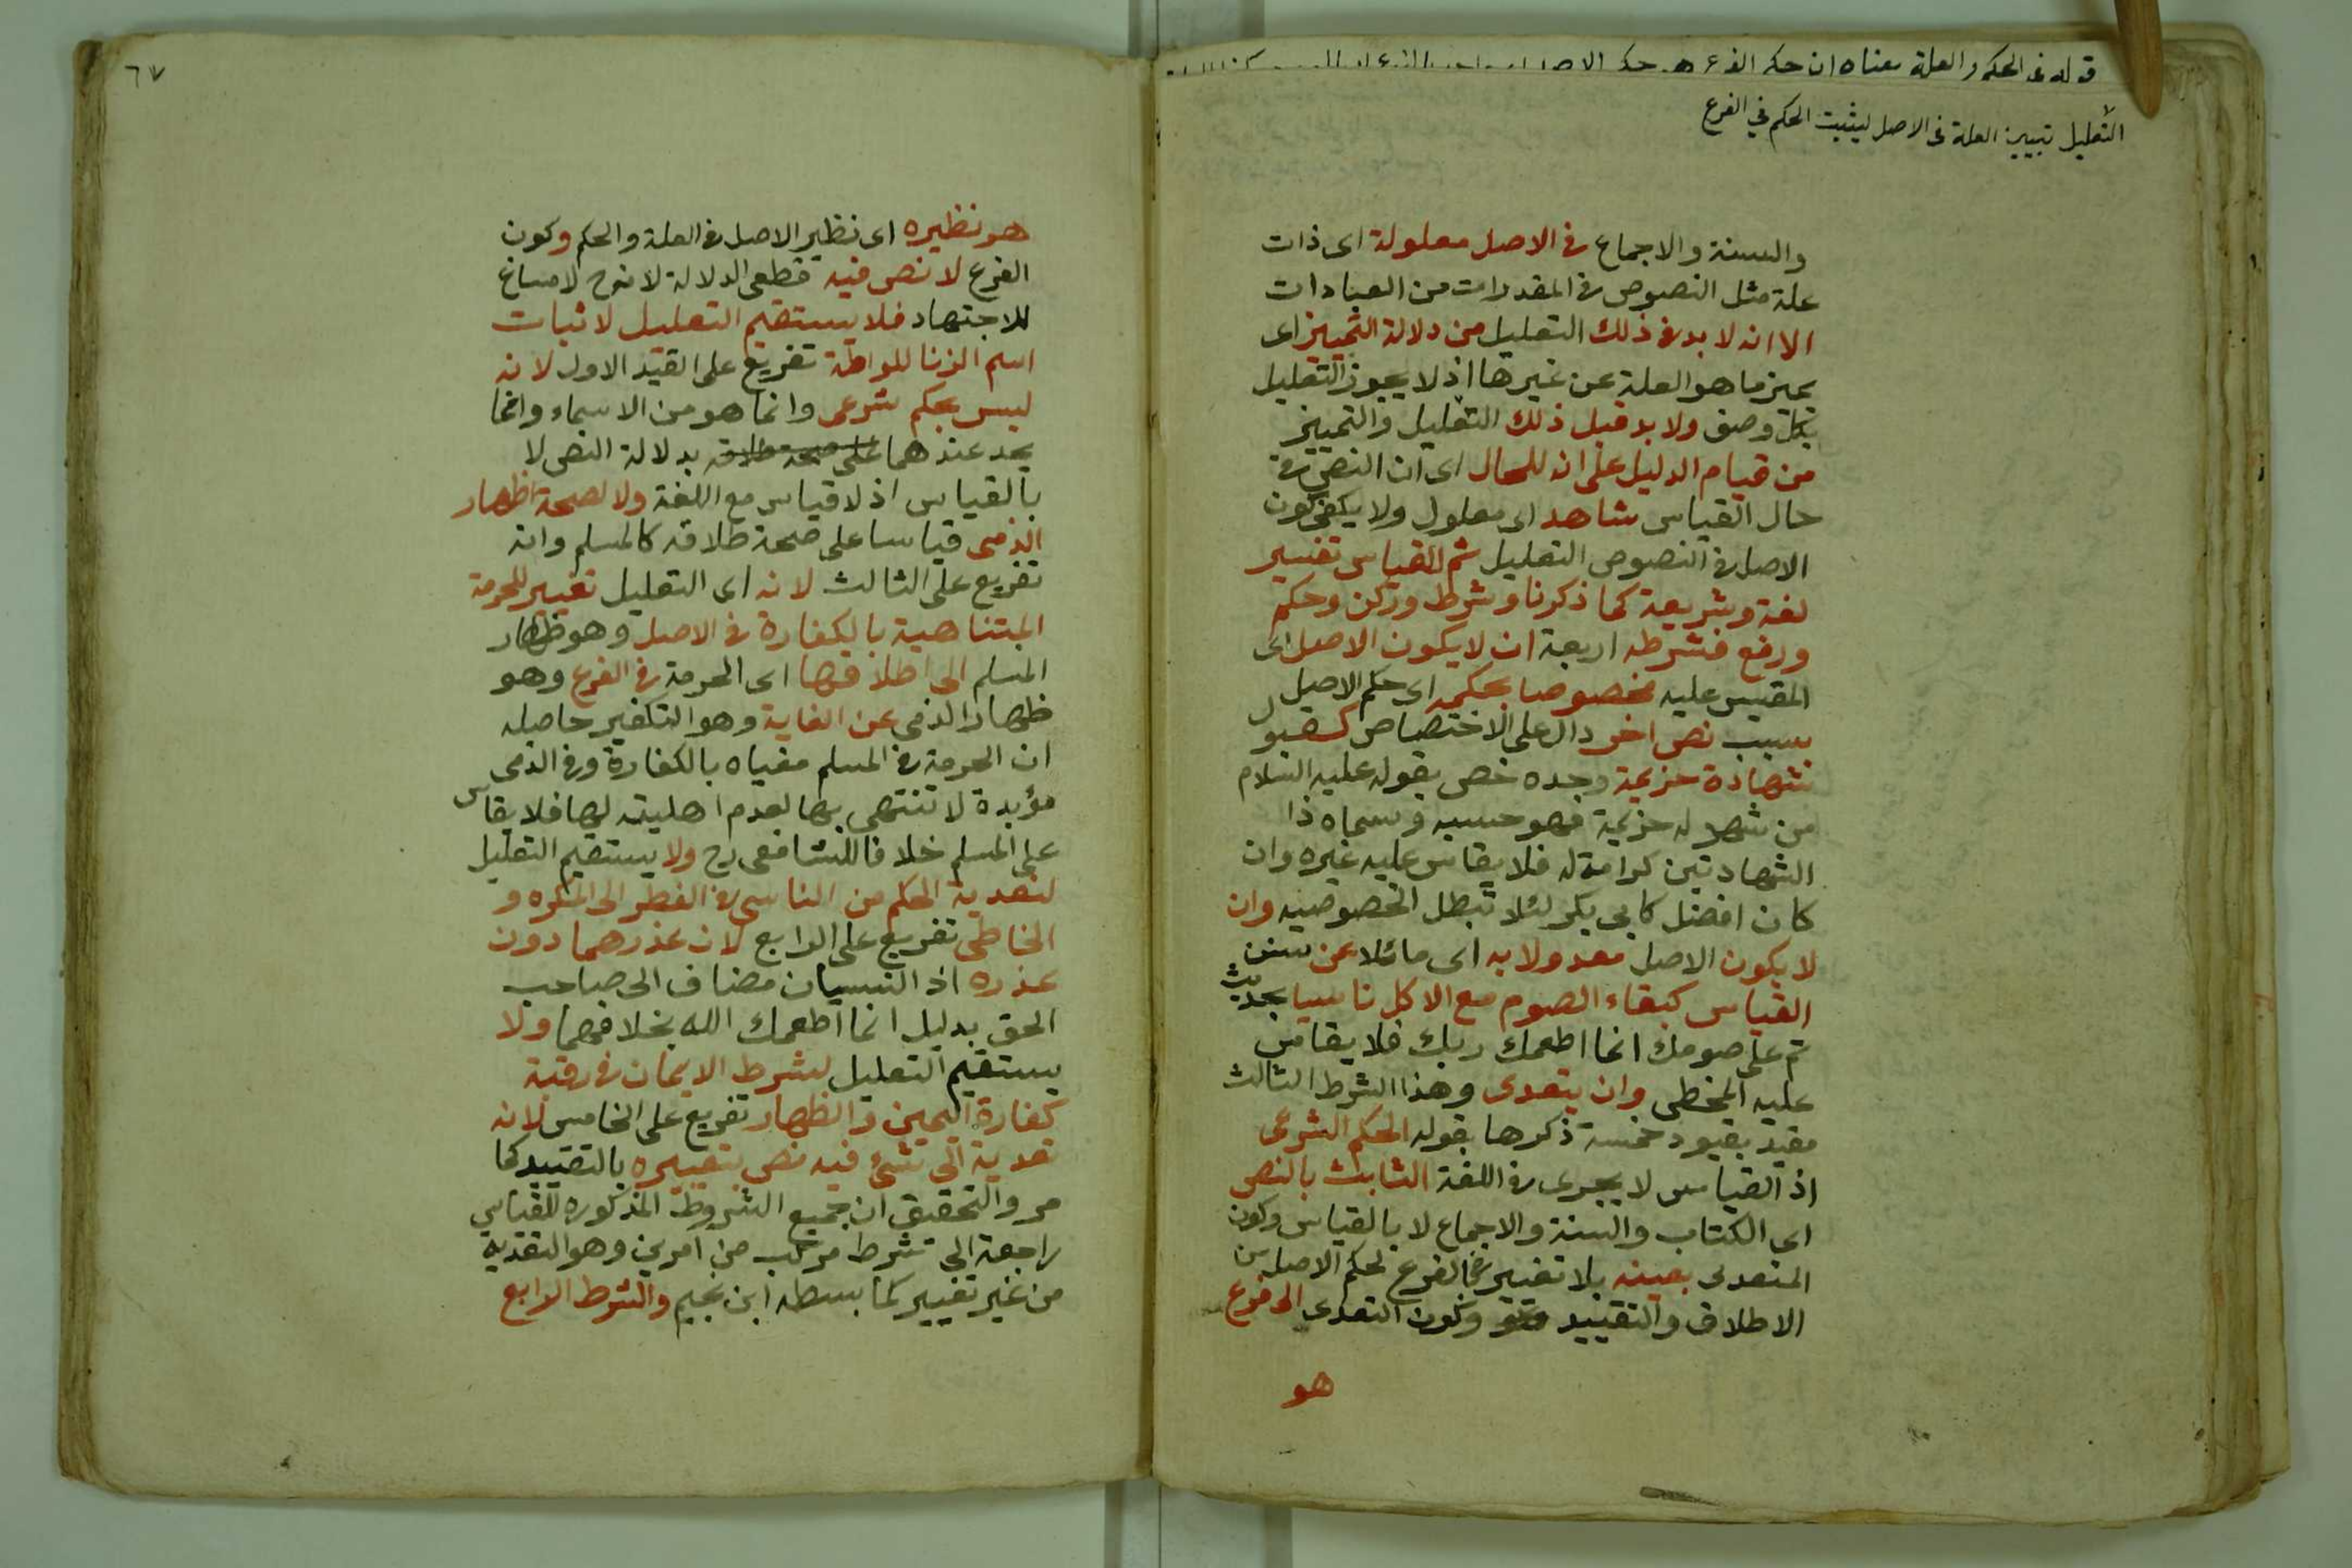 قوله فى الحكم والعلة معناه ان حكم الفرع هو حكم
التعليل تبيين العلة فى الاصل ليثبت الحكم في الفرع
والسنة والاجماع فى الاصل معلولة اى ذات
علة مثل النصوص فى المقدرات من العبادات
الا انه لا بد فى ذلك التعليل من دلالة التمييز اى
يميز ما هو العلة عن غيرها اذ لا يجوز التعليل
بكل وصف ولا بد قبل ذلك التعليل والتمييز
من قيام الدليل على انه للحال اى ان النص فى
حال القياس شاهد اى معلول ولا يكفى كون
الاصل فى النصوص التعليل ثم القياس تفسير
لغة وشريعة كما ذكرنا وشرط وركن وحكم
ودفع فشرطه اربعة ان لا يكون الاصل اى
المقيس عليه مخصوصا بحكمه اى حكم الاصل
بسبب نص اخر دال على الاختصاص كقبول
شهادة خزيمة وحده خص بقوله عليه السلام
من شهد له خزيمة فهو حسبه وسماه ذا
الشهادتين كرامة له فلا يقاس عليه غيره وان
كان افضل كابى بكر لئلا تبطل الخصوصية وان
لا يكون الاصل معدولا به اى مائلا عن سنن
القياس كبقاء الصوم مع الاكل ناسيا بحديث
تم على صومك انما اطعمك ربك فلا يقاس
عليه المخطى وان يتعدى وهذا الشرط الثالث
مقيد بقيود خمسة ذكرها بقوله الحكم الشرعى
اذ القياس لا يجرى فى اللغة الثابت بالنص
اى الكتاب والسنة والاجماع لا بالقياس وكون
المتعدى بعينه بلا تغيير فى الفرع لحكم الاصل من
الاطلاق والتقييد وكون التعدى الى فرع
هو
٦٧
هو نظيره اى نظير الاصل فى العلة والحكم وكون
الفرع لا نص فيه قطعى الدلالة لانه ح لا مساغ
للاجتهاد فلا يستقيم التعليل لاثبات
اسم الزنا للواطة تفريع على القيد الاول لانه
ليس بحكم شرعى وانما هو من الاسماء وانما
يحد عندهما على صحة طلاقه بدلالة النص لا
بالقياس اذ لا قياس مع اللغة ولا لصحة اظهار
الذمى قياسا على صحة طلاقه كالمسلم وانه
تفريع على الثالث لانه اى التعليل تغيير للحرمة
المتناهية بالكفارة فى الاصل وهو ظهار
المسلم الى اطلاقها اى الحرمة فى الفرع وهو
ظهار الذمى عن الغاية وهو التكفير حاصله
ان الحرمة فى المسلم مغياه بالكفارة وفى الذمى
مؤبدة لا تنتهى بها لعدم اهليته لها فلا يقاس
على المسلم خلافا للشافعى رح ولا يستقيم التعليل
لتعدية الحكم من الناسى فى الفطر الى المكره و
الخاطى تفريع على الرابع لان عذرهما دون
عذره اذ النسيان مضاف الى صاحب
الحق بدليل انما اطعمك الله بخلافهما ولا
يستقيم التعليل لشرط الايمان فى رقبة
كفارة اليمين والظهار تفريع على الخامس لانه
تعدية الى شئ فيه نص بتغييره بالتقييد كما
مر والتحقيق ان جميع الشروط المذكوره للقياس
راجعة الى شرط مركب من امرين وهو التعدية
من غير تغيير كما بسطه ابن نجيم والشرط الرابع